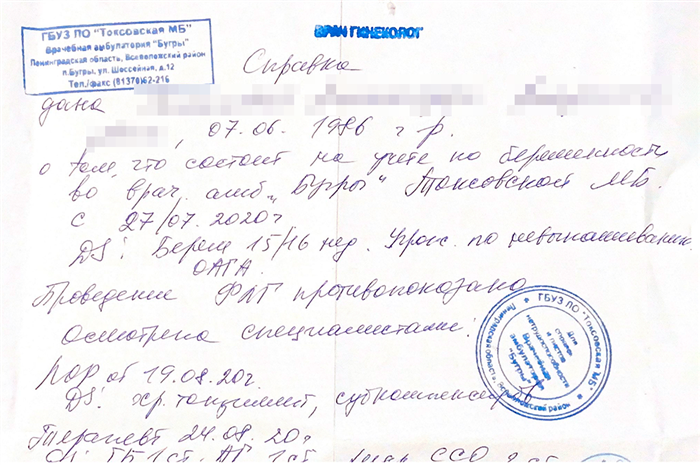 ГБУЗ ЛО "Токсовская МБ"
Врачебная амбулатория "Бугры"
Ленинградская область, Всеволожский район
п.Бугры, ул. Шоссейная, д.12
Тел./факс (81370)62-216
ВРАЧ ГИНЕКОЛОГ
Справка
дана
, 07.06. 1986 г р.
о том, что состоит на учете по беременности
во врач. амб. „Бугры" Токсовской МБ.
с 27/07. 2020г
DS: Берем 15/16 нед. Угрож. по невынашиванию.
ОАГА.
Проведение ФЛГ противопоказано
Осмотрена специалистами:
ЛОР от 19.08.20г.
DS: хр. тонзиллит, субкомпенсир
Терапевт 24.08.20г
ГБ 1ст. АГ 1ст. ССО 2 ст
ГБУЗ ЛО "Токсовская МБ"
Для
справок
и листков
нетрудоспособности
Врачебная
амбулатория
"Бугры"